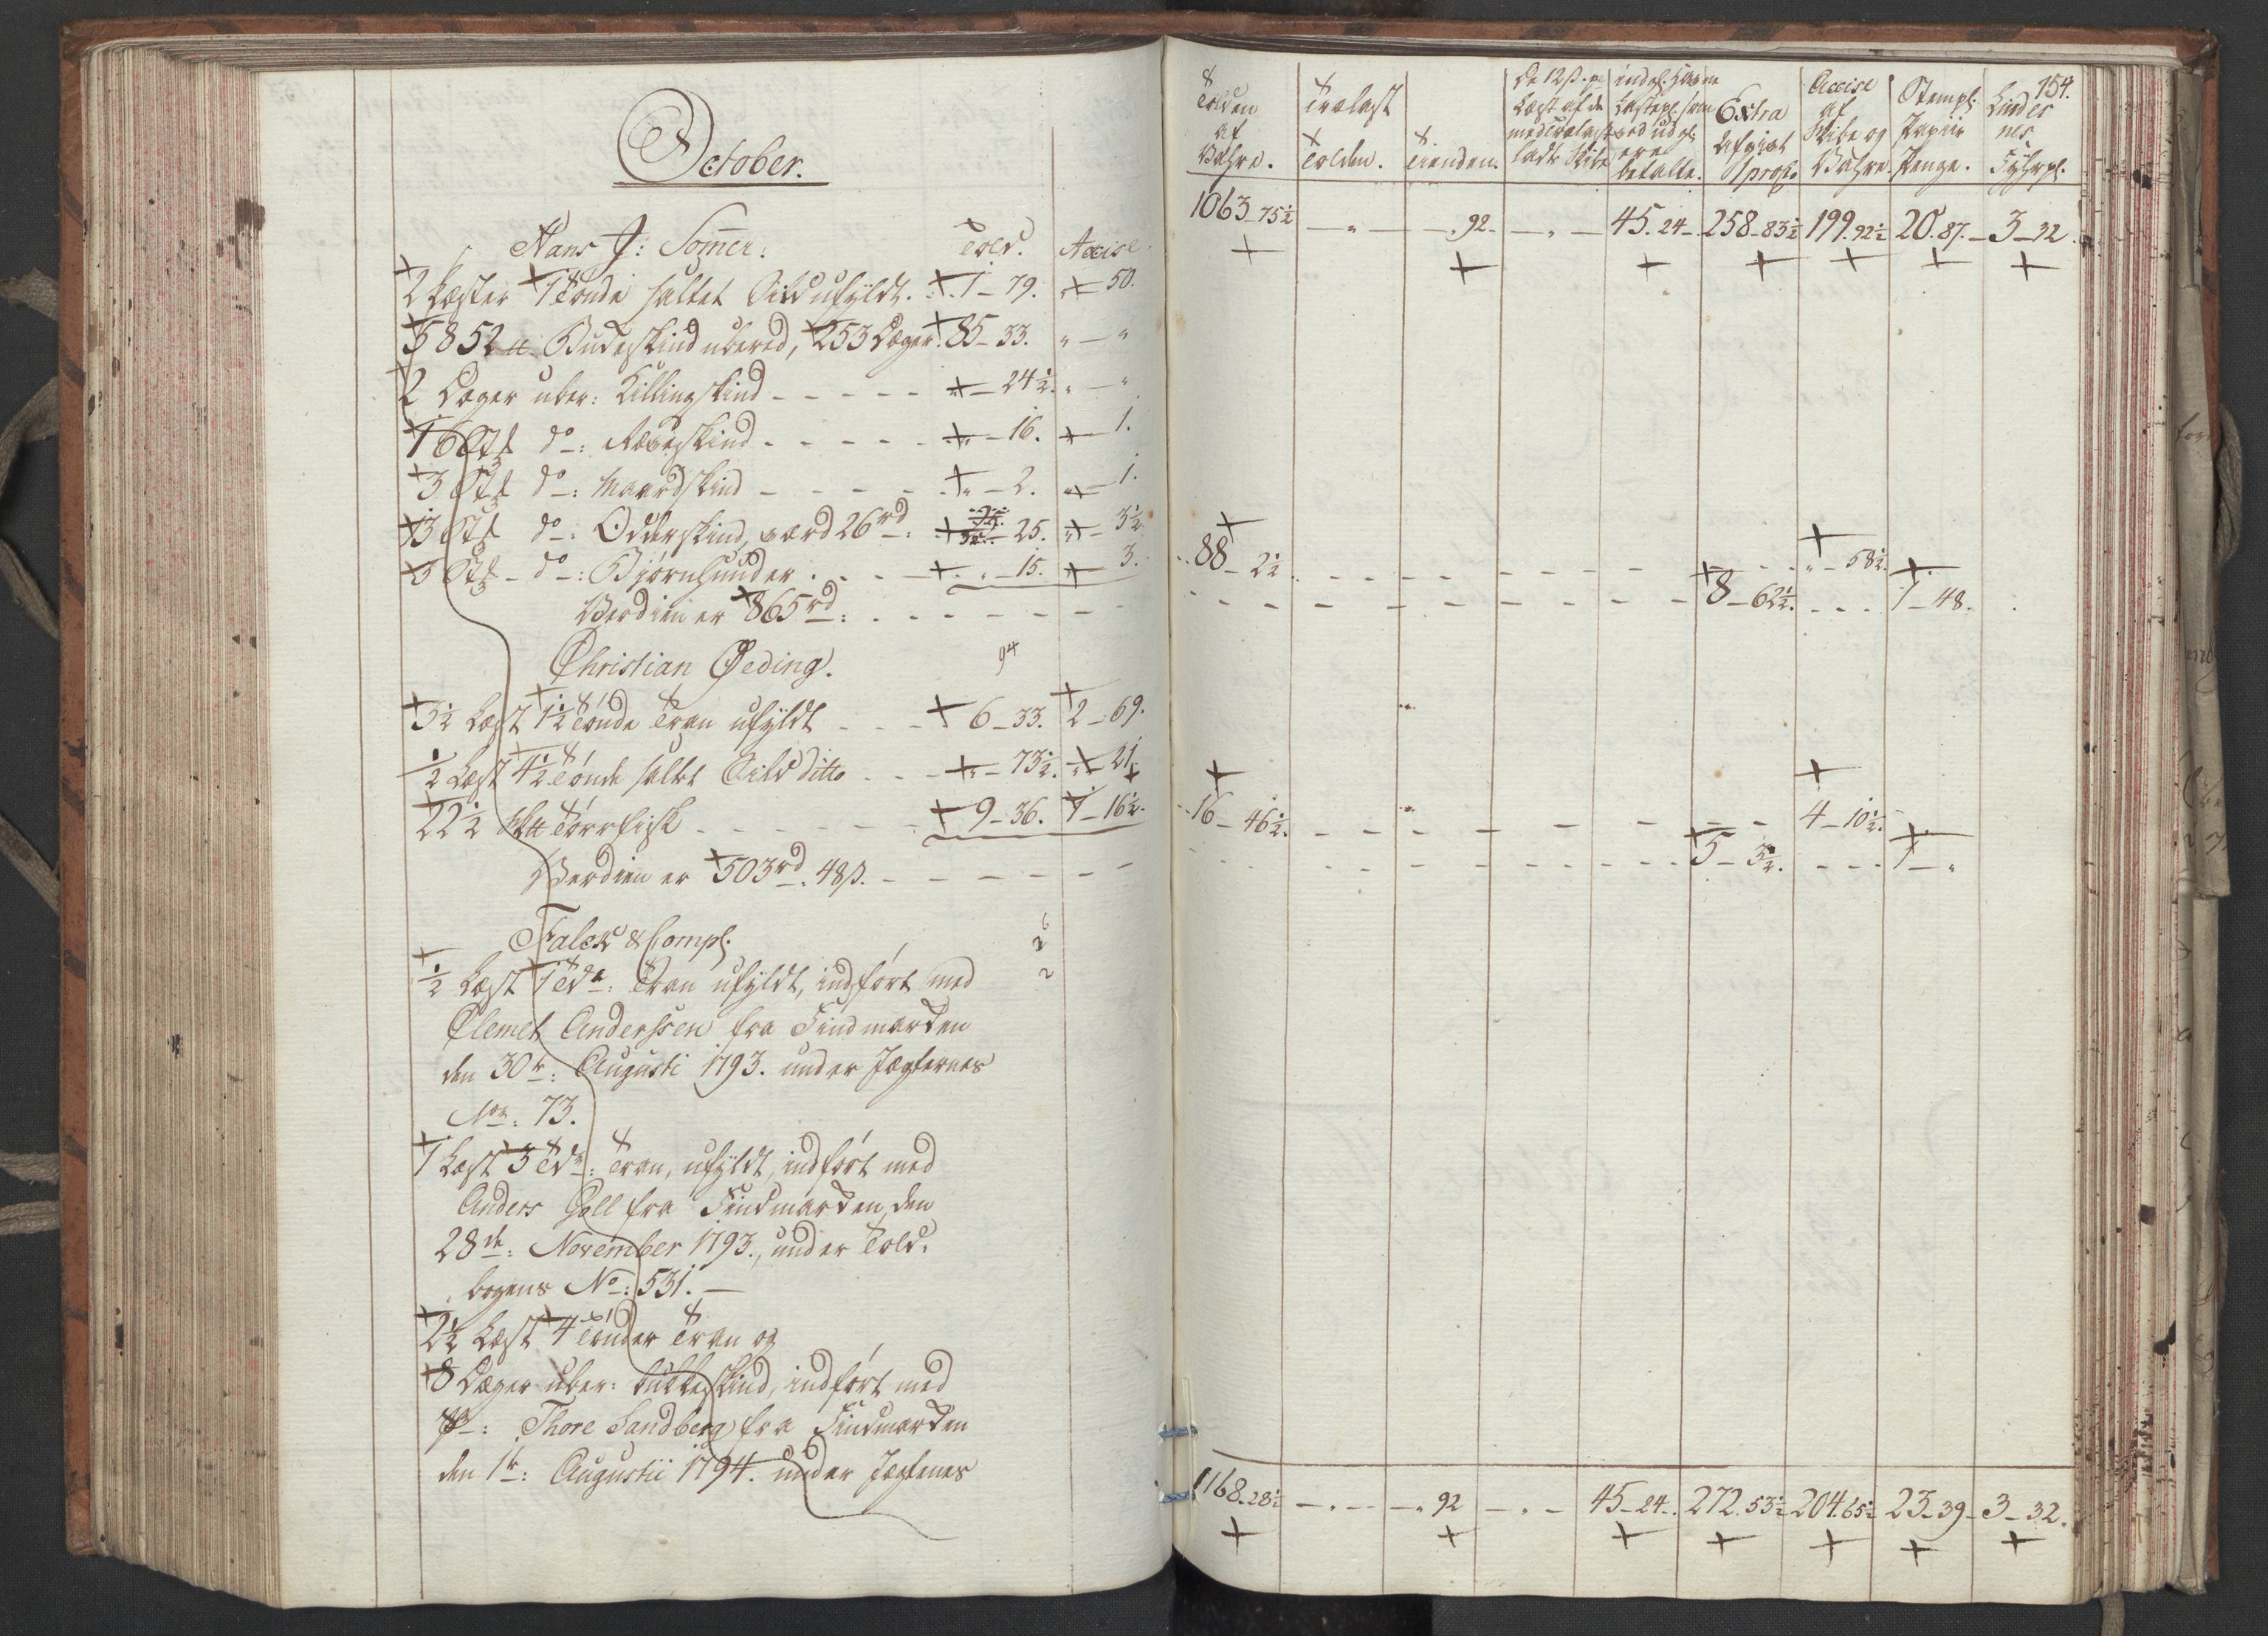 October.
Hans J: Somer. Told. Accise.
2 Læster 1 Tønde saltet Sild ufyldt. 1-79. " 50.
5852 ℔ Buckeskind ubered, 253 Deger. 85-33. " - "
2 Deger uber: Killingskind - - - - - " - 24½. " - "
16 Stk do: Ræveskind - - - - - " - 16. " 1.
3 Stk do: Maardskind - - - - - " - 2. " 1.
13 Stk do: Odderskind, værd 26rd: " - 25. " 3½.
3 Stk - do: Bjørnhuuder . . . - " - 15. " 3.
Verdien er 865rd: . - - - - - -
Christian Øeding. 94
3½ Læst 1½ Tønde Tran ufyldt - - - 6-33. 2-69.
½ Læst 4½ Tønde saltet Sild ditto - - - " - 73½. " 21.
22½ Tørrfisk - - - - - - 9-36. 1-16½.
Verdien er 503rd. 48ß. - - - - - -
Falck & Comp:
½ Læst 1 Tde: Tran ufyldt, indført med
Clemet Anderssen fra Findmarken
den 30te: Augusti 1793. under Jægternes
No: 73.
1 Læst 3 Tdr: Tran, ufyldt, indført med
Anders Gall fra Findmarken den
28de: November 1793., under Told-
bogens No: 531. -
2½ Læst 4 Tønder Tran og
8 Deger uber: Buckeskind, indført med
Thore Sandberg fra Findmarken
den 1te: Augustii 1794. under Jægtenes
154.
Tolden af Vahre.
Trælast Tolden.
Tienden.
De 12ß. pr Læst af de med Trælast ladte Skibe
betalte.
Extra Afgivt 1 proct.
Accise af Skibe og Vahre.
Stempl: Papiir Penge.
Lindes nes Fyhrpl.
1063-75½ - " - - " 92- - " - 45. 24-. 258-83½ 199. 92½ 20. 87.- 3-32.
88-2½. - - - - - - - - - " - 58½.
- - - - - - - - 8-62½. - - - 1-48.
16-46½. - - - - - - - - 4-10½.
- - - - - - - - 5-3½. - - - 1-"
1168-28½ - " - - " 92 - " - 45-24-. 272. 53½ 204. 65½ 23-39- 3-32.